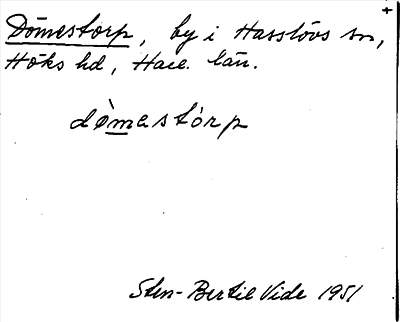 Dömestorp, by i Hasslövs sn,
Höks hd, Hall. län.
dò̤mastórp
Sten-Bertil Vide 1951